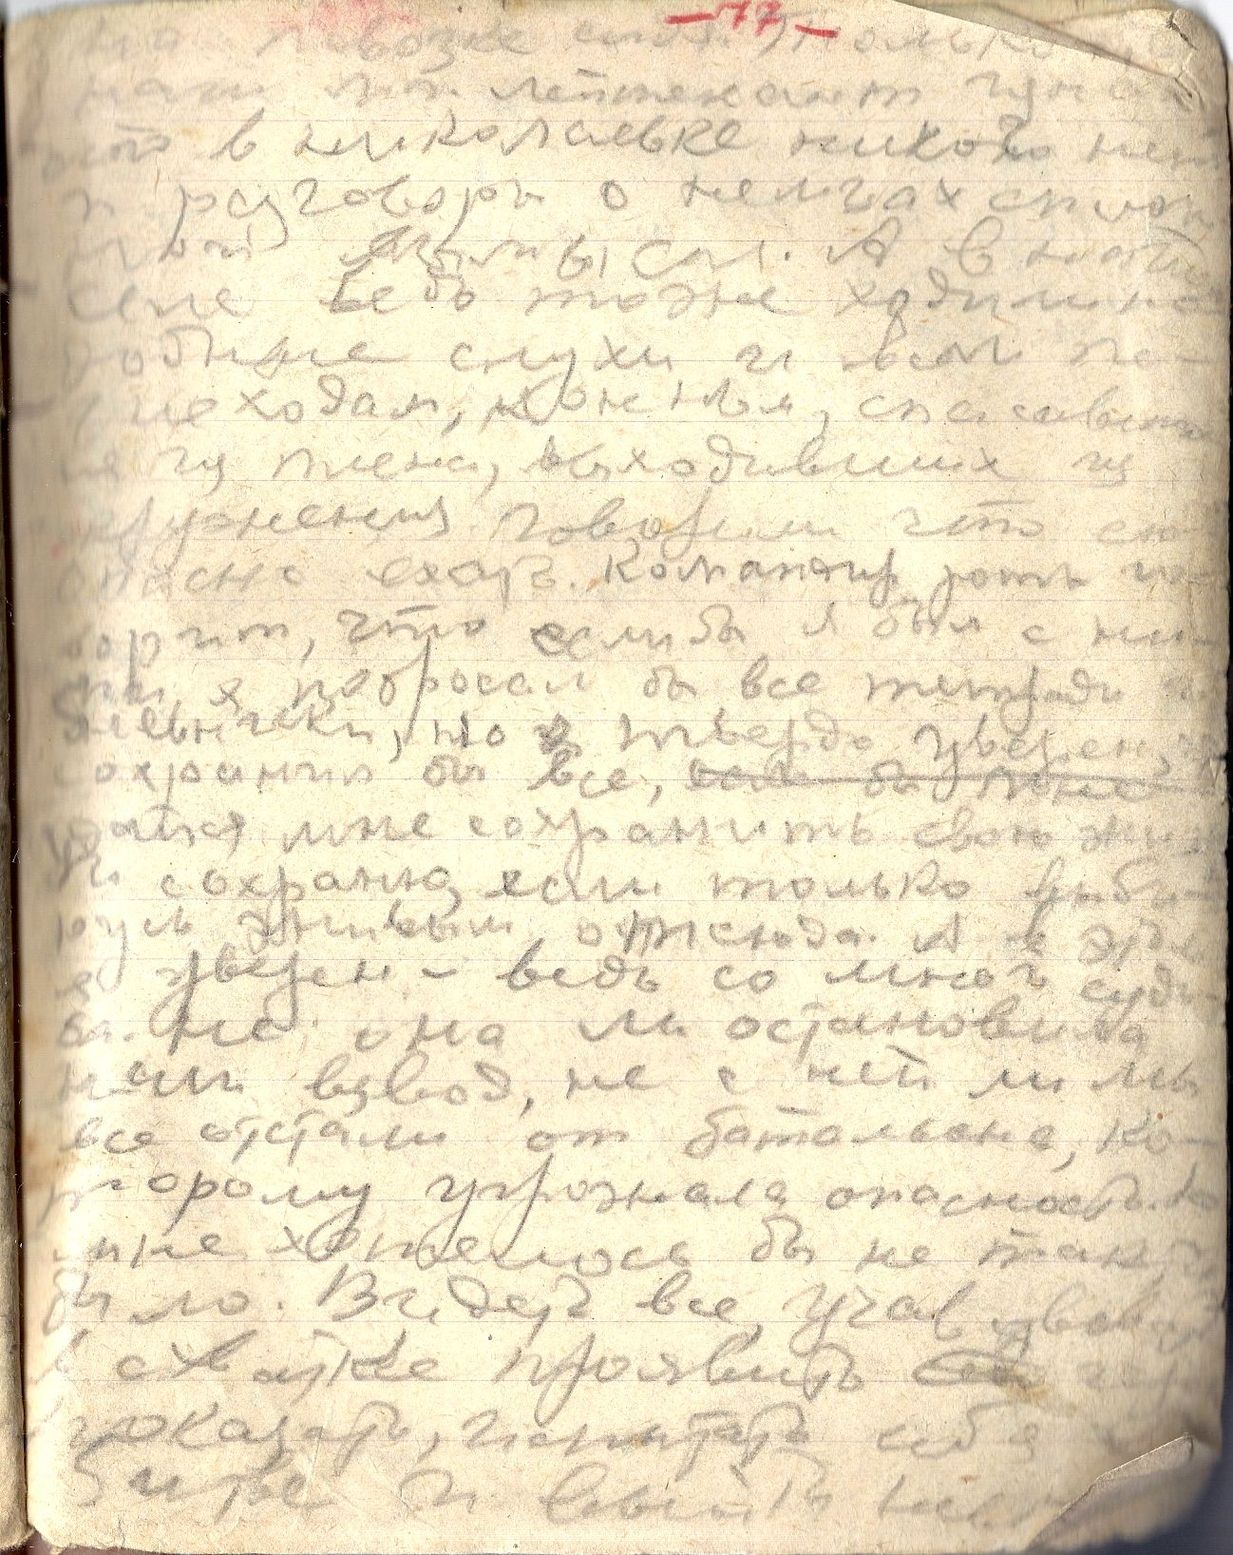 -77-
на повозке
наш мл. лейтенант
что в николаевке никого нет
и разговоры о немцах сплош
ной вымысел. А в
селе ведь тоже ходили по
добные слухи и всем пе-
шеходам, конным, спасавши
ся из плена, выходивших из
окружения говорили что
опасно ехать. Командир роты го-
ворит, что если бы я был с ни-
ми, я побросал бы все тетради и
дневники, но я твердо уверен,
сохранил бы все,
удайся мне сохранить свою жиз
И сохраню, если только выбе-
русь живым отсюда. А в этом
я уверен - ведь со мной судь-
ба. Не она ли остановила
наш взвод, не с ней ли мы
все отстали от батальона, ко-
торому угрожала опасность. Но
мне хотелось бы не так
было. Видеть все,
в схватке проявить
показать, испытать себя в
битве и выйти